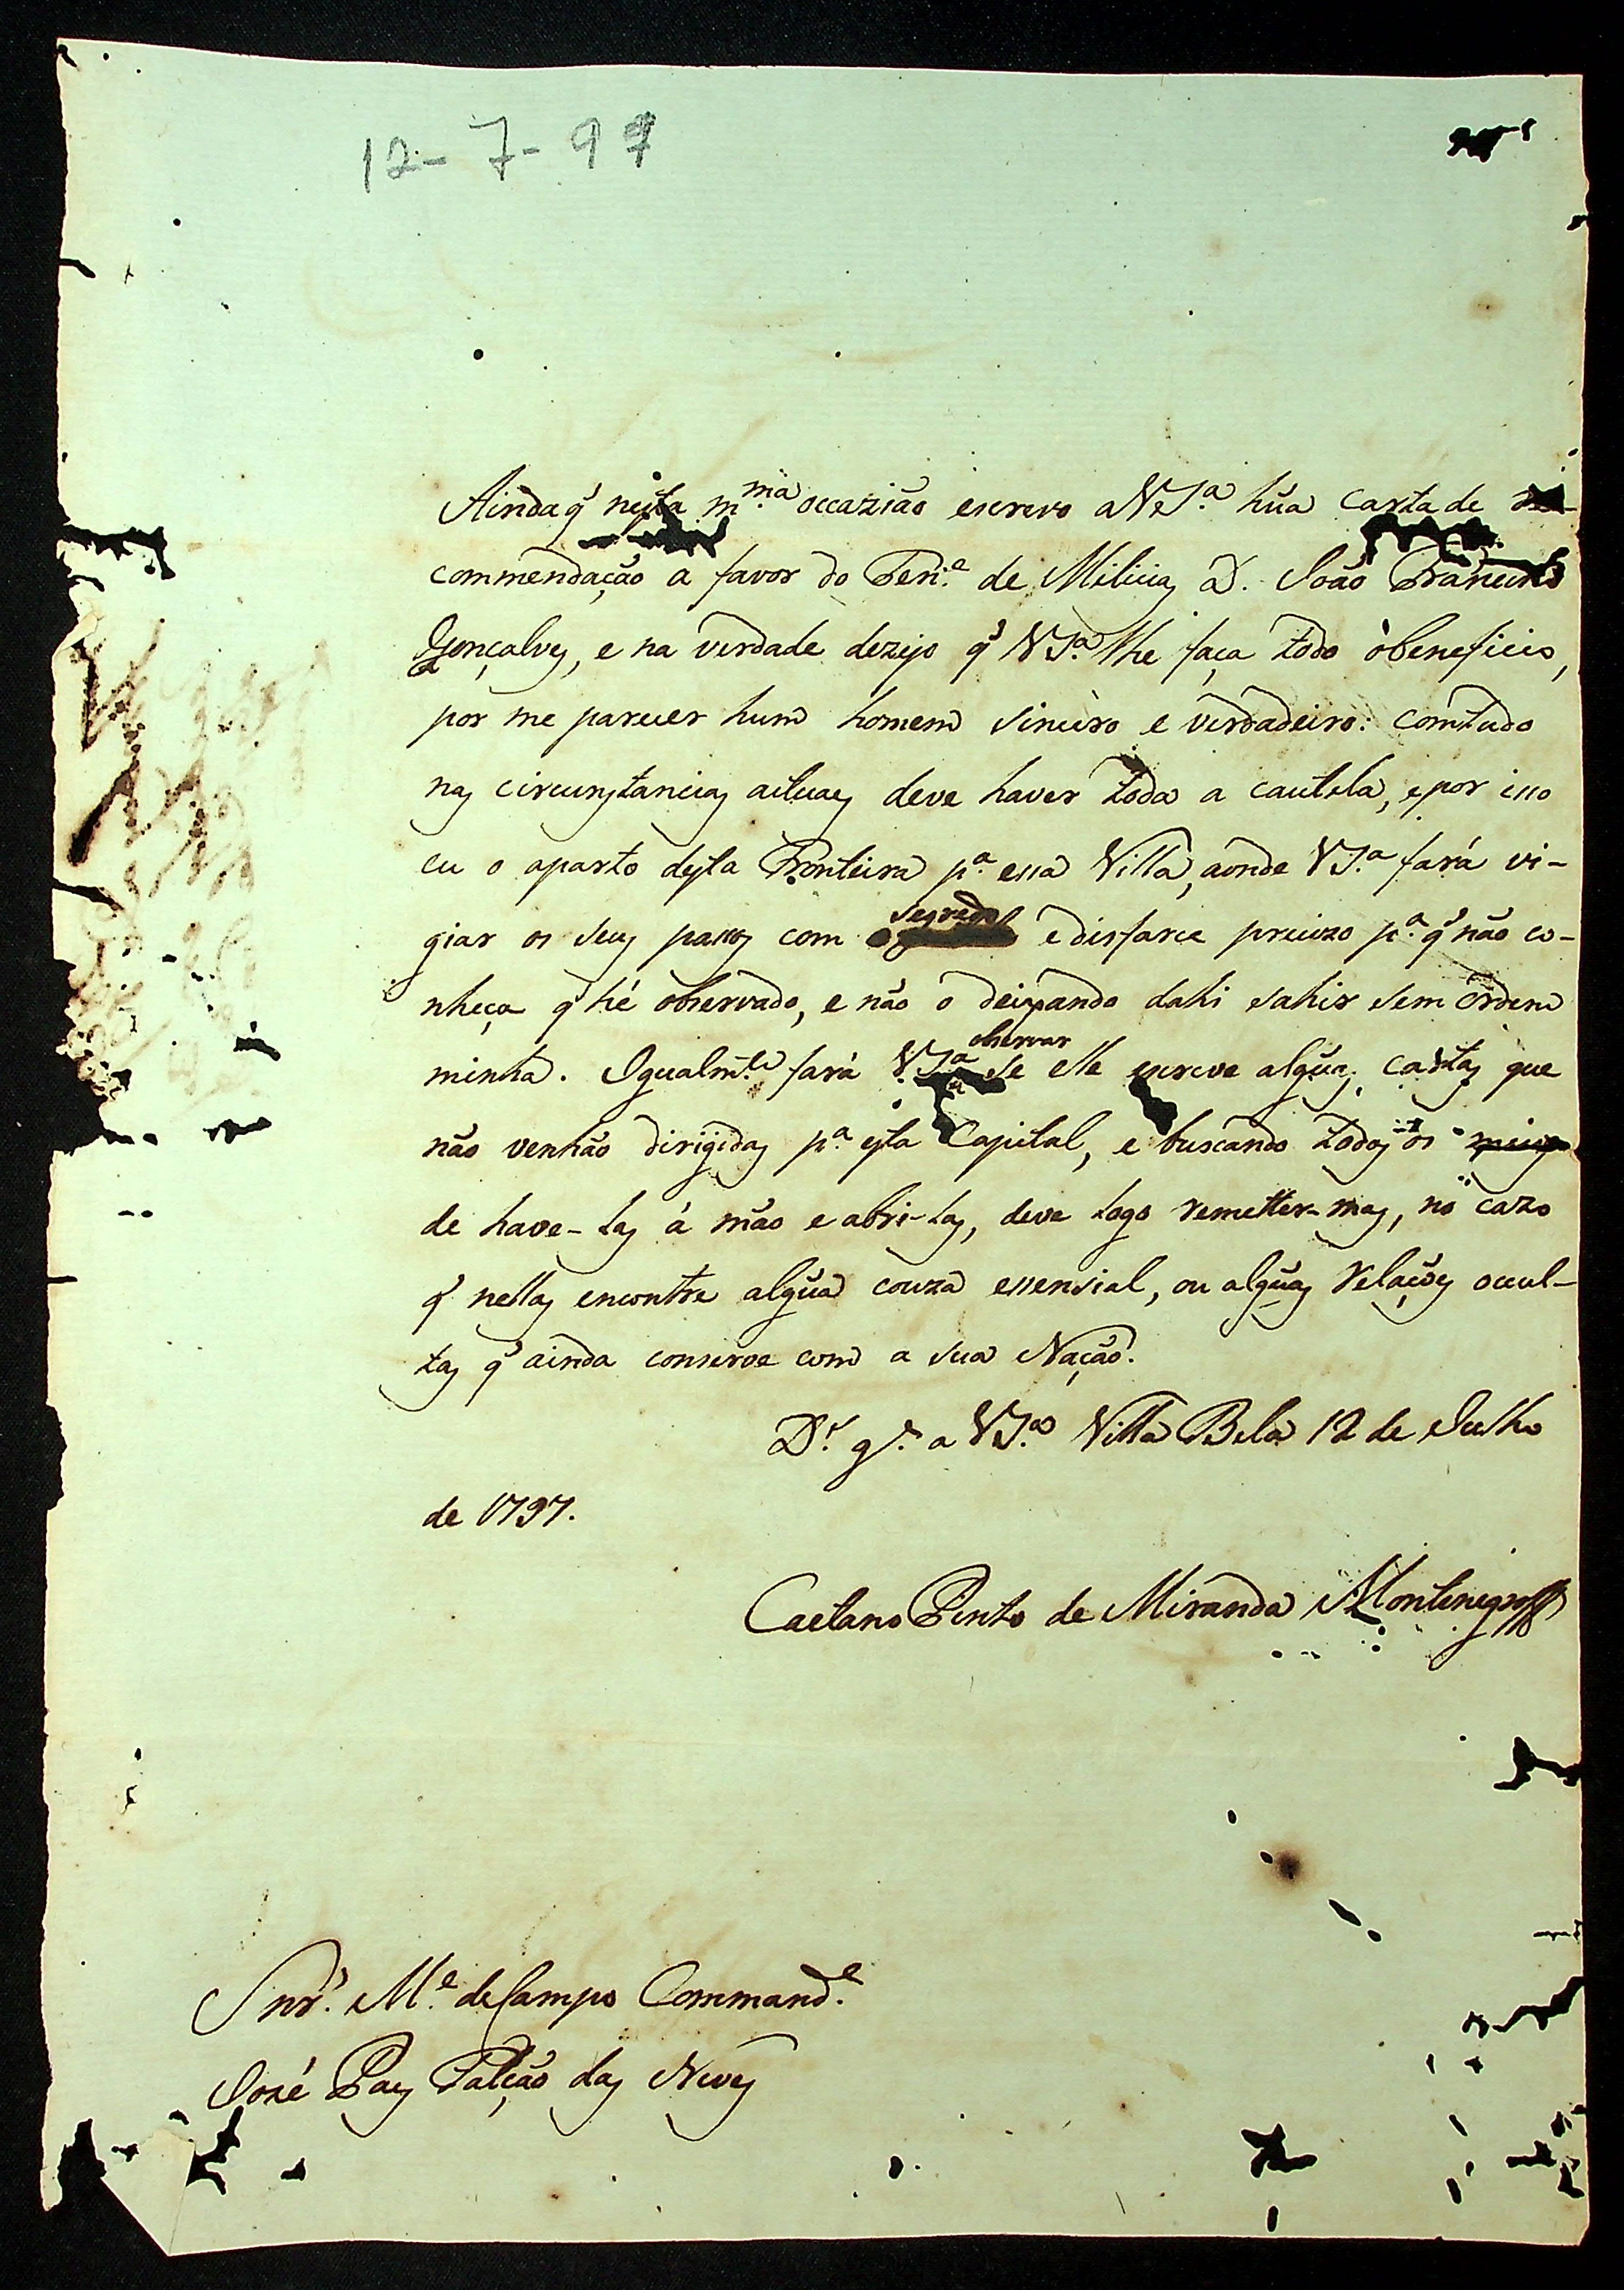 12-7-97
Ainda q̃ nesta m.ma occazião escrevo a V S.ª hũa carta de re-
commendação a favor do Ten.e de Milicias D. João Francisco
Gonçalves, e na verdade dezejo q̃ V S.ª lhe faça todo o beneficio,
por me parecer hum homem sincèro e verdadeiro: comtudo
nas circunstancias actuaes deve haver toda a cautela, e por isso
eu o aparto desta Fronteira p.ª essa Villa, aonde V S.ª fará vi-
giar os seus passos com o segredo e disfarce precizo p.ª q̃ não co-
nheça q̃ hé observado, e não o deixando dahi sahir sem ordem
minha. Igualm.te fará V S.ª observar se elle escreve algũas cartas que
não venhão dirigidas p.ª esta Capital, e buscando todos os meios
de have-las á mão e abri-las, deve logo remetter-mas, no cazo
q̃ nellas encontre algũa couza essensial, ou algũas relações occul-
tas q̃ ainda conserve com a sua Nação.
D.s g.e a V S.ª Villa Bela 12 de Julho
de 1797.
Caetano Pinto de Miranda Montenegro
Snr. M.e de Campo Command.e
José Paes Falcão das Neves